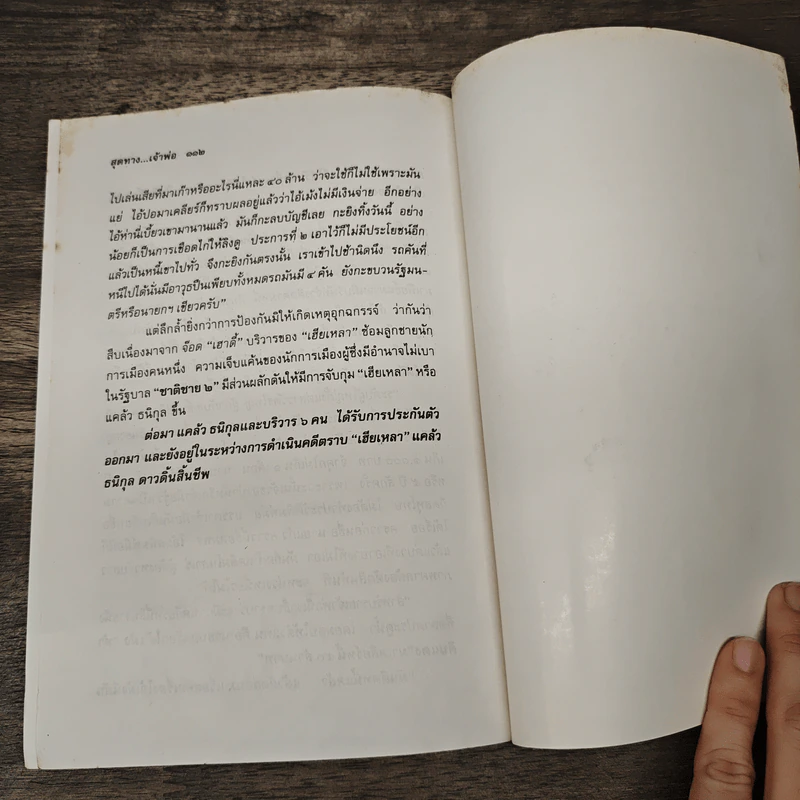 สุดทาง...เจ้าพ่อ ๑๑๒
ไปเล่นเสียที่มาเก๊าหรืออะไรนี่แหละ ๔๐ ล้าน ว่าจะใช้ก็ไม่ใช้เพราะมัน
แย่ ไอ้ปอมาเคลียร์ก็ทราบผลอยู่แล้วว่าไอ้เม้งไม่มีเงินจ่าย อีกอย่าง
ไอ้ห่านี่เบี้ยวเขามานานแล้ว มันก็กะลบบัญชีเลย กะยิงทิ้งวันนี้ อย่าง
น้อยก็เป็นการเชือดไก่ให้ลิงดู ประการที่ ๒ เอาไว้ก็ไม่มีประโยชน์อีก
แล้วเป็นหนี้เขาไปทั่ว จึงกะยิงกันตรงนั้น เราเข้าไปช้านิดนึง รถคันที่
หนีไปได้นั่นมีอาวุธปืนเพียบทั้งหมดรถมันมี ๔ คัน ยังกะขบวนรัฐมน-
ตรีหรือนายกฯ เชียวครับ”
แต่ลึกล้ำยิ่งกว่าการป้องกันมิให้เกิดเหตุอุกฉกรรจ์ ว่ากันว่า
สืบเนื่องมาจาก จ๊อด “เฮาดี้” บริวารของ “เฮียเหลา” ซ้อมลูกชายนัก
การเมืองคนหนึ่ง ความเจ็บแค้นของนักการเมืองผู้ซึ่งมีอำนาจไม่เบา
ในรัฐบาล “ชาติชาย ๒” มีส่วนผลักดันให้มีการจับกุม “เฮียเหลา” หรือ
แคล้ว ธนิกุล ขึ้น
ต่อมา แคล้ว ธนิกุลและบริวาร ๖ คน ได้รับการประกันตัว
ออกมา และยังอยู่ในระหว่างการดำเนินคดีตราบ “เฮียเหลา” แคล้ว
ธนิกุล ดาวดิ้นสิ้นชีพ